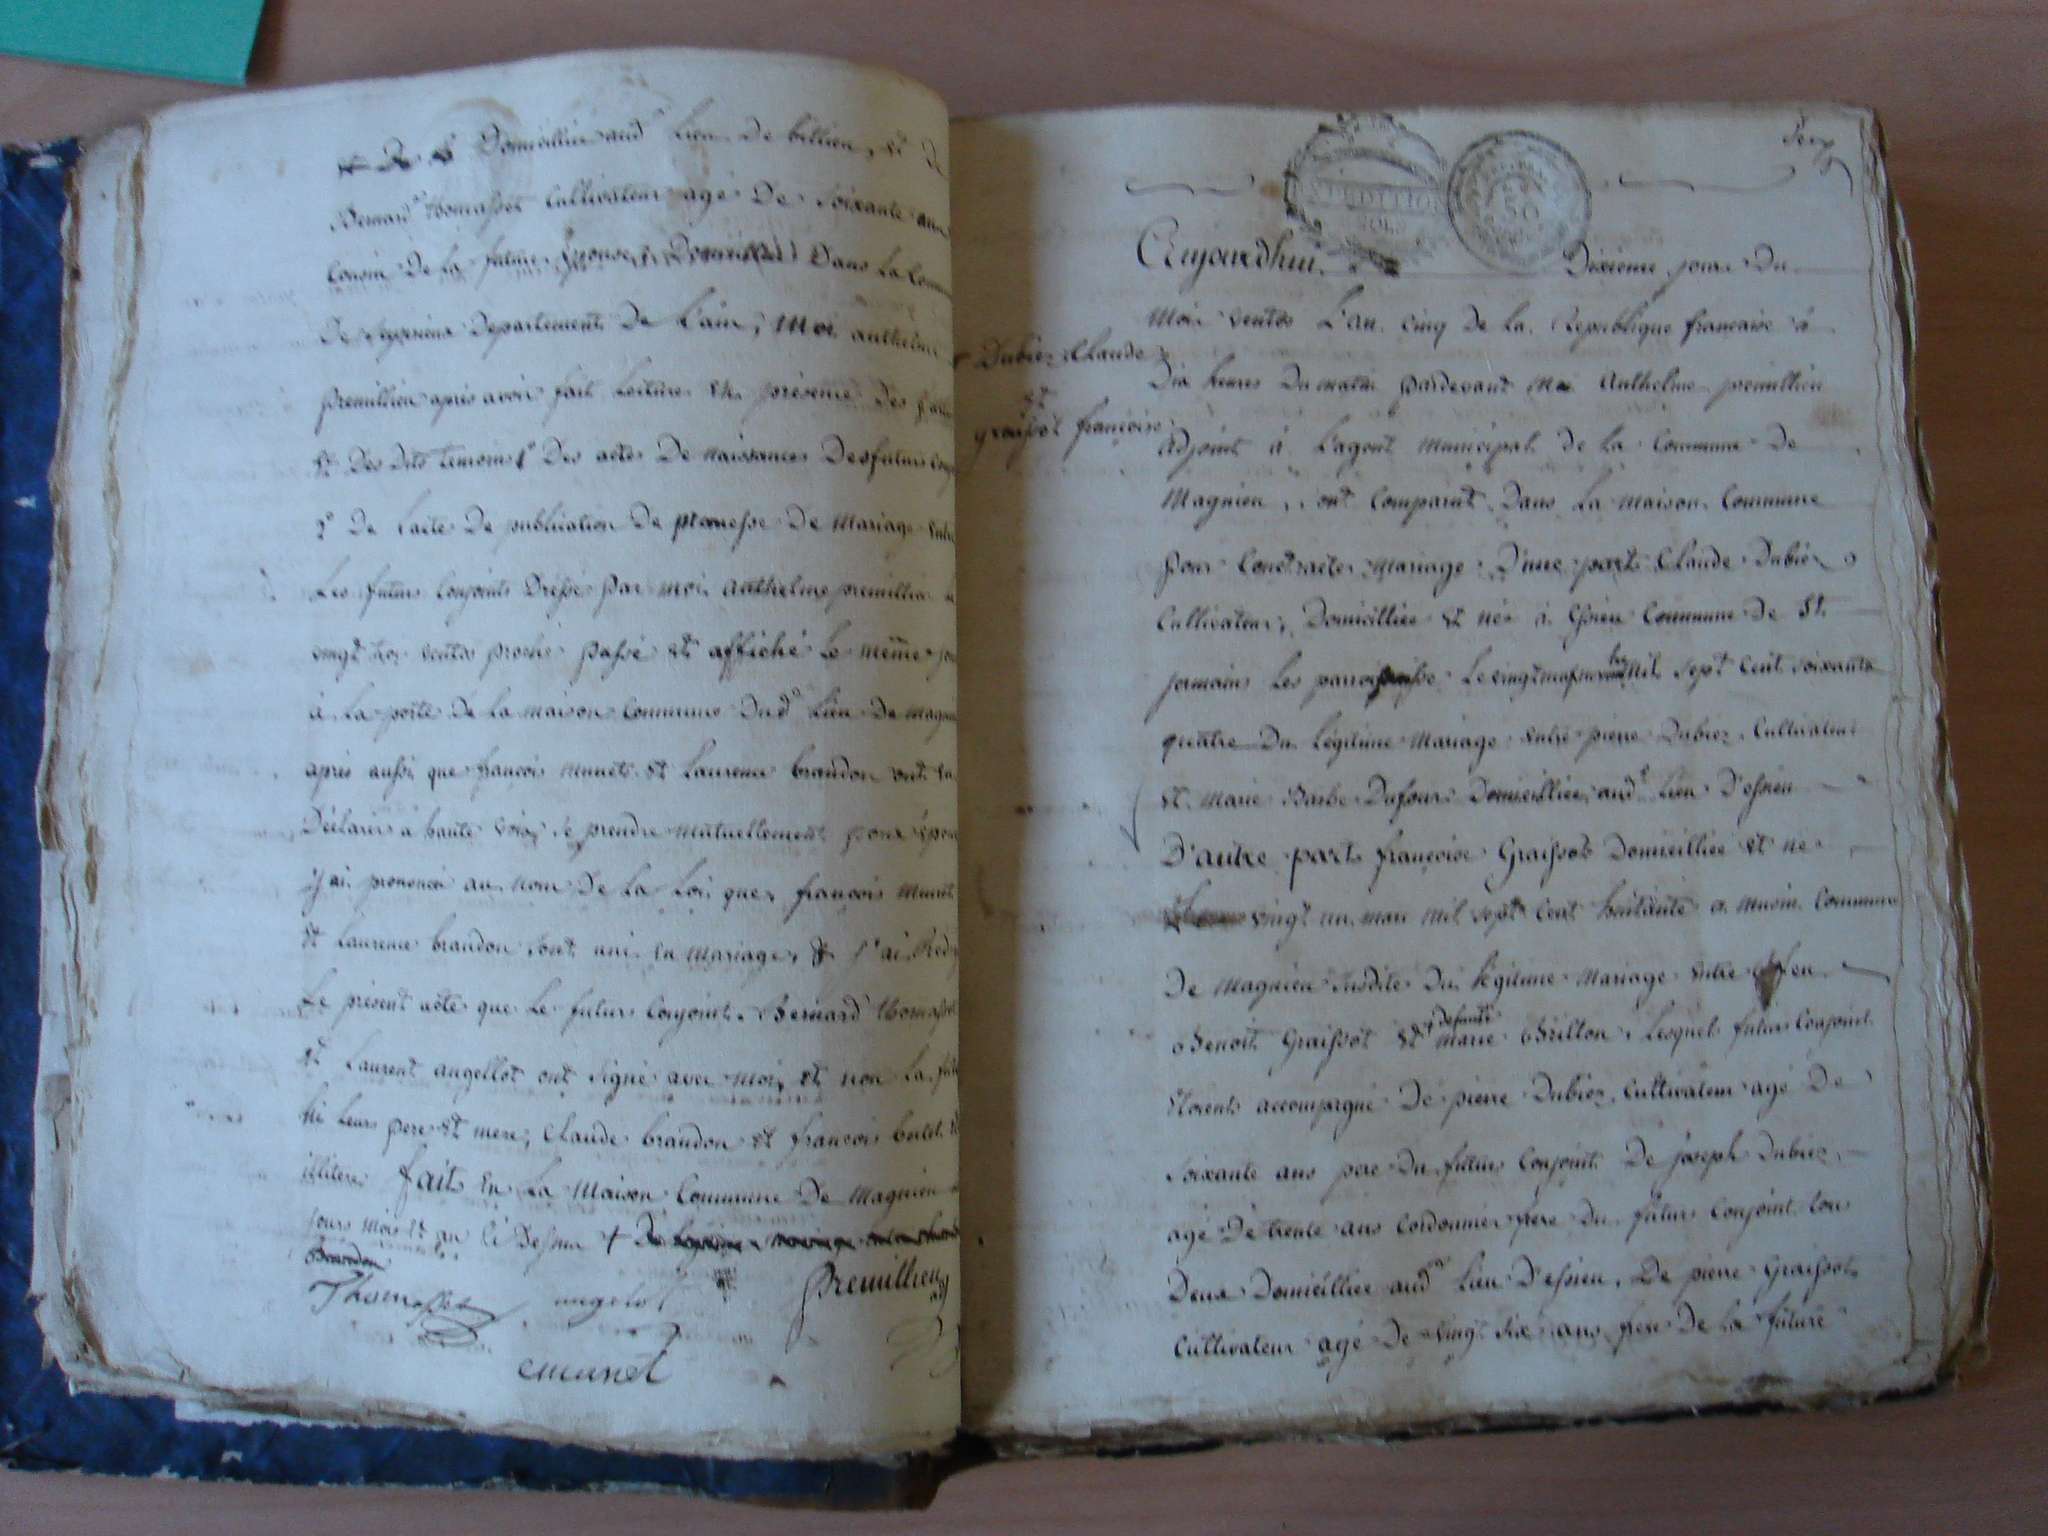 Domicillié aud lieu de billieu, et de
Bernard thomasset Cultivateur agé de Soixante ans
Cousin de la future Epouse, Domicillié Dans la Commune
De Departement De L'ain, Moi anthelme
premillieu après avoir fait Lecture En présence Des parties
Et Des dits temoins 1º Des actes De naissances Des futurs
2º De L'acte De publication De promesse De Mariage Entre
Les futurs Conjoints Dressé par moi anthelme premillieu le
vingt ventos proche passé et affiché Le même jour
à La porte De la maison Commune Dud lieu De magnieu
après aussi que françois munet et Laurence brandon ont
Déclarer à haute voix Se prendre mutuellement pour époux
J'ai prononcé au nom De La Loi que françois Munet
et Laurence brandon sont uni En mariage, & J'ai
Le présent acte que Le futur Conjoint Bernard thomasset
et Laurent angellot ont Signé avec moi, et non la future
Ni leurs pere et mere; Claude brandon et françois
illitere fait En La Maison Commune De Magnieu
jours mois et an Ci Dessus +
Brandon
Thomasset angelot Premillieu
emunet
Aujourdhui Dixieme jour Du
Mois Ventos L'an Cinq De la Republique française à
Dubiez Claude
Dix heures Du matin Pardevant Moi Anthelme premillieu
et
graissot françoise
Adjoint à L'agent Municipal De la Commune De
Magnieu, Sont Comparut Dans La Maison Commune
Pour Contracter Mariage D'une part Claude Dubiez
Cultivateur, Domicilliée et né à Essieu Commune De St
jermains Les parroisse Le vingt mil Sept Cent Soixante
quatre Du Légitime Mariage Entre pierre Dubiez Cultivateur
et Marie Barbe Dufour Domicilliée aud lieu D'essieu
D'autre part françoise Graissot Domicilliée et né
vingt un mars mil Sept Cent huitante a Musin Commune
De Magnieu Susdite Du Légitime Mariage Entre feu
Benoit Graissot et Defunte Marie Brillon, Lesquels futurs Conjoints
Etoient accompagné De pierre Dubiez Cultivateur agé De
Soixante ans pere Du futurs Conjoint De joseph Dubiez
agé De trente ans Cordonnier frere Du futurs Conjoint tous
Deux Domicilliée aud lieu D'essieu, De pierre Graissot
Cultivateur agé De vingt Six ans frere De La future